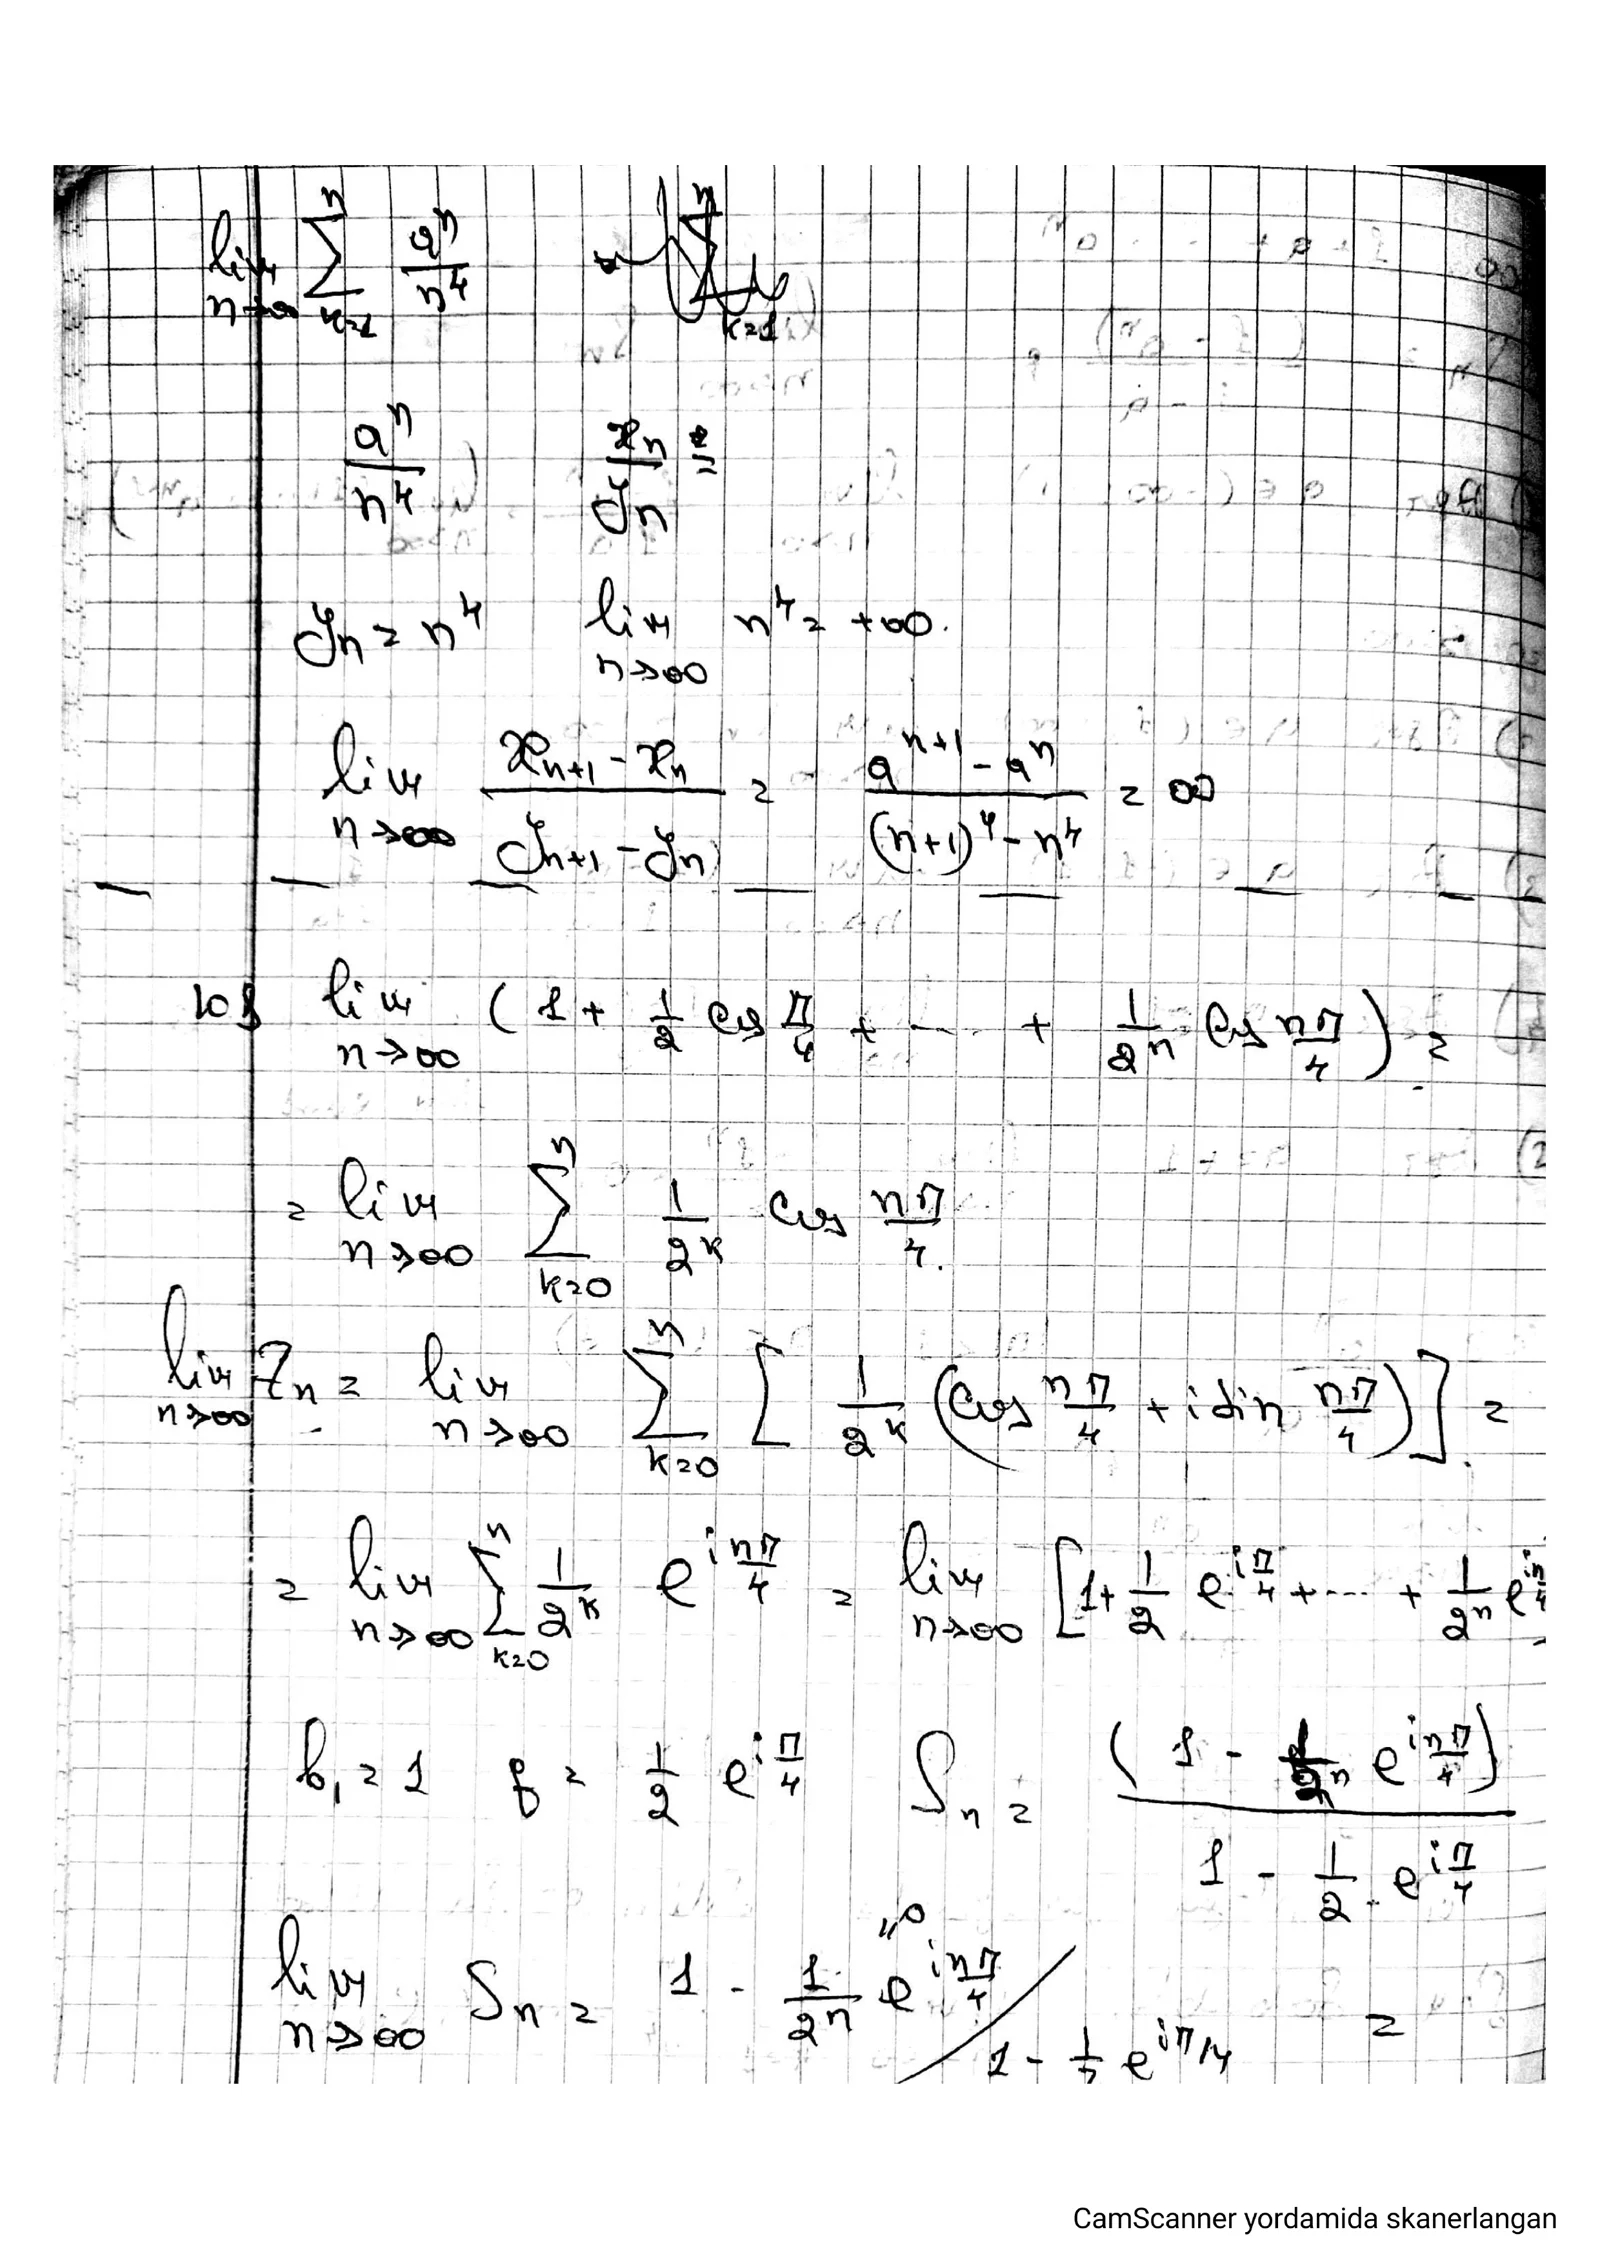 lim n→∞ ∑ k=1 n aⁿ/n⁴
k=1
aⁿ/n⁴ xn/yn =
yn = n⁴ lim n→∞ n⁴ = +∞.
lim n→∞ (xn+1 - xn)/(yn+1 - yn) = (aⁿ⁺¹ - aⁿ)/((n+1)⁴ - n⁴) = ∞
lim n→∞ (1 + 1/2 cos π/4 + ... + 1/2ⁿ cos nπ/4) =
= lim n→∞ ∑ k=0 n 1/2ᵏ cos nπ/4.
lim n→∞ Zn = lim n→∞ ∑ k=0 n [1/2ᵏ (cos nπ/4 + i sin nπ/4)] =
= lim n→∞ ∑ k=0 n 1/2ᵏ e^(i nπ/4) = lim n→∞ [1 + 1/2 e^(i π/4) + ... + 1/2ⁿ e^(i nπ/4)
b₁ = 1 q = 1/2 e^(i π/4) Sn = (1 - 1/2ⁿ e^(i nπ/4))/(1 - 1/2 e^(i π/4))
lim n→∞ Sn = 1 - 1/2ⁿ e^(i nπ/4) / 1 - 1/2 e^(iπ/4) =
CamScanner yordamida skanerlangan